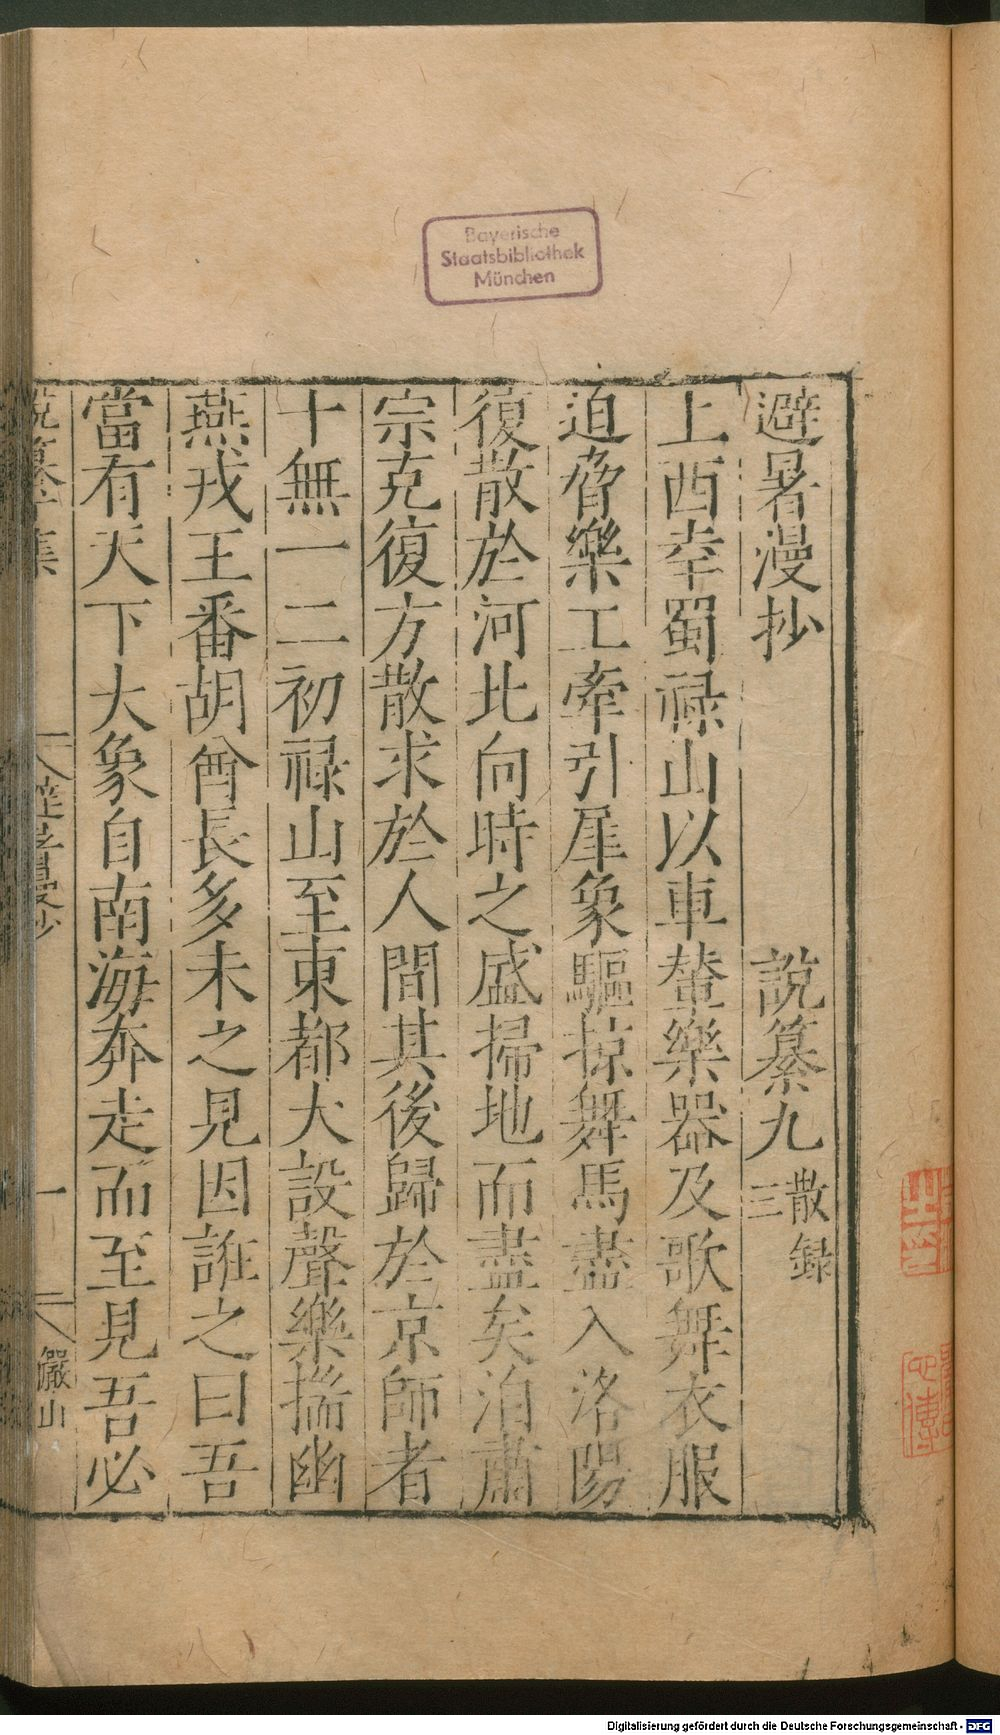 Bayerische
Staatsbibliothek
München
避暑漫抄 說纂九 散録三
上西幸蜀禄山以車輦樂器及歌舞衣服
迫脅樂工牽引犀象驅掠舞馬盡入洛陽
復散於河北向時之盛掃地而盡矣洎肅
宗克復方散求於人間其後歸於京師者
十無一二初禄山至東都大設聲樂揣幽
燕戎王番胡酋長多未之見因誑之曰吾
當有天下大象自南海奔走而至見吾必
一 儼山
Digitalisierung gefördert durch die Deutsche Forschungsgemeinschaft - DFG